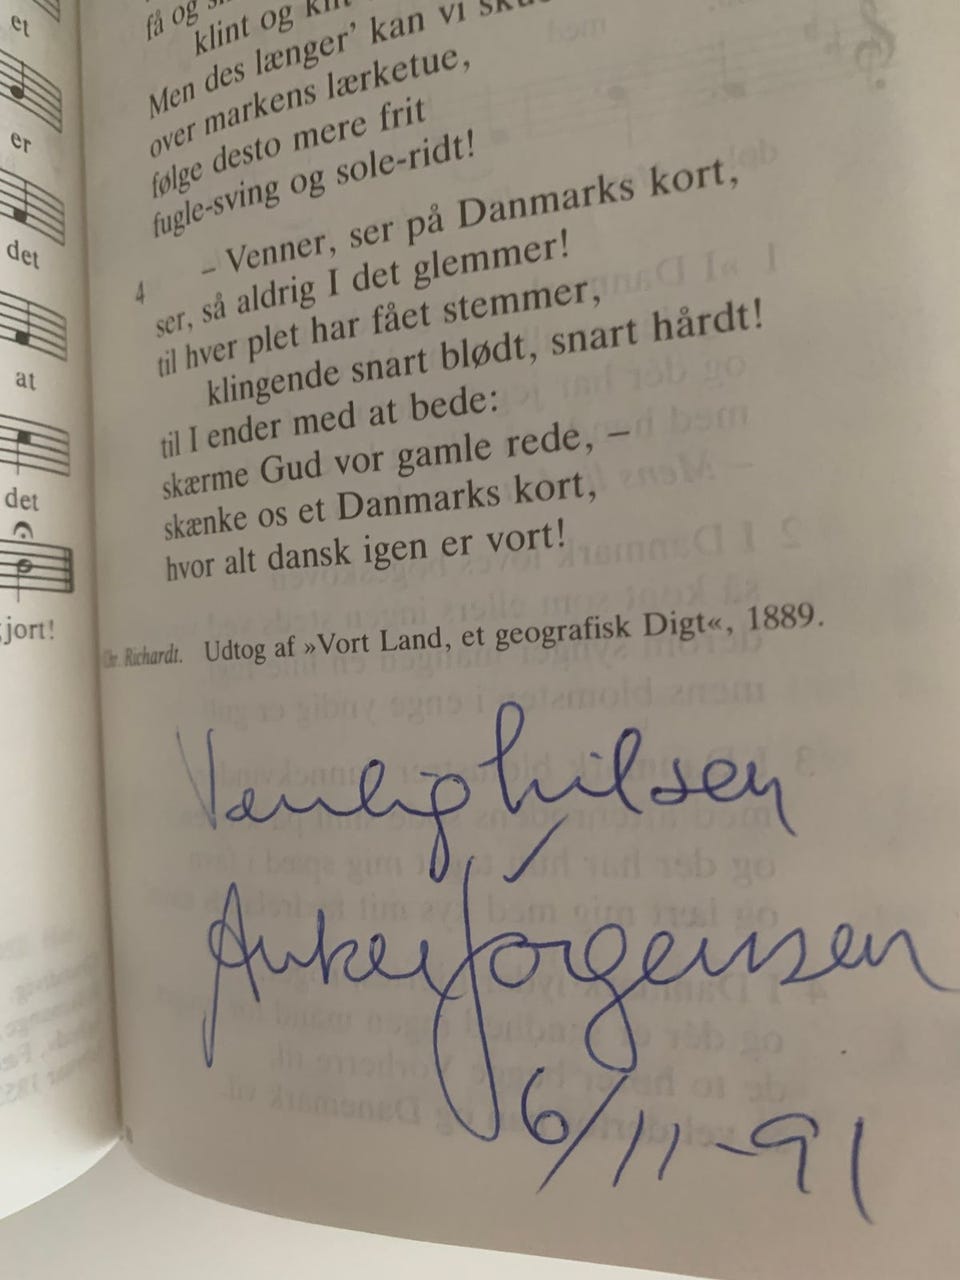 et
er
det
at
det
jort!
få og
klint og
Men des længer' kan vi
over markens lærketue,
følge desto mere frit
fugle-sving og sole-ridt!
4 – Venner, ser på Danmarks kort,
ser, så aldrig I det glemmer!
til hver plet har fået stemmer,
klingende snart blødt, snart hårdt!
til I ender med at bede:
skærme Gud vor gamle rede, –
skænke os et Danmarks kort,
hvor alt dansk igen er vort!
Chr. Richardt. Udtog af »Vort Land, et geografisk Digt«, 1889.
Venlig hilsen
Anker Jørgensen
6/11-91